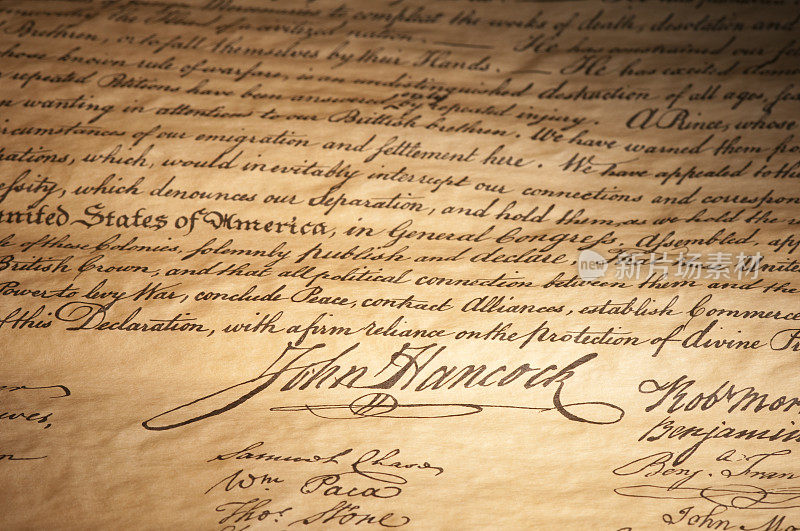 to compleat the works of death, desolation and
civilized nation. — He has constrained our
Brethren, or to fall themselves by their Hands. — He has excited
whose known rule of warfare, is an undistinguished destruction of all ages,
repeated Petitions have been answered by repeated injury. A Prince, whose
wanting in attentions to our Brittish brethren. We have warned them
circumstances of our emigration and settlement here. We have appealed to
which, would inevitably interrupt our connections and
which denounces our Separation, and hold them, as we hold the
united States of America, in General Congress, Assembled,
of these Colonies, solemnly publish and declare,
British Crown, and that all political connection between them and the
Power to levy War, conclude Peace, contract Alliances, establish Commerce
of this Declaration, with a firm reliance on the protection of divine
John Hancock
Robt
Benjamin
Samuel Chase
Wm Paca
Benja. Fran
Thos. Stone
John
new 新图视觉